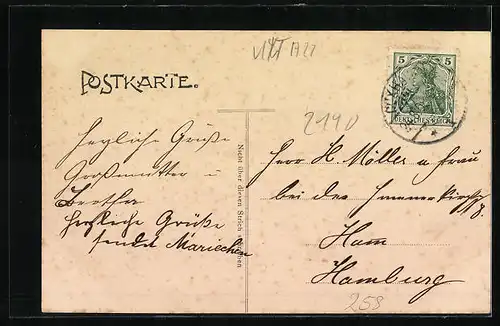 POSTKARTE.
2190
5 5
DEUTSCHES REICH
herzliche Grüße
Großmutter u
Bertha
herzliche Grüße
sendet Mariechen
Nicht über diesen Strich schreiben
Herr H. Möller u Frau
bei der
8.
Hamm
Hamburg
258